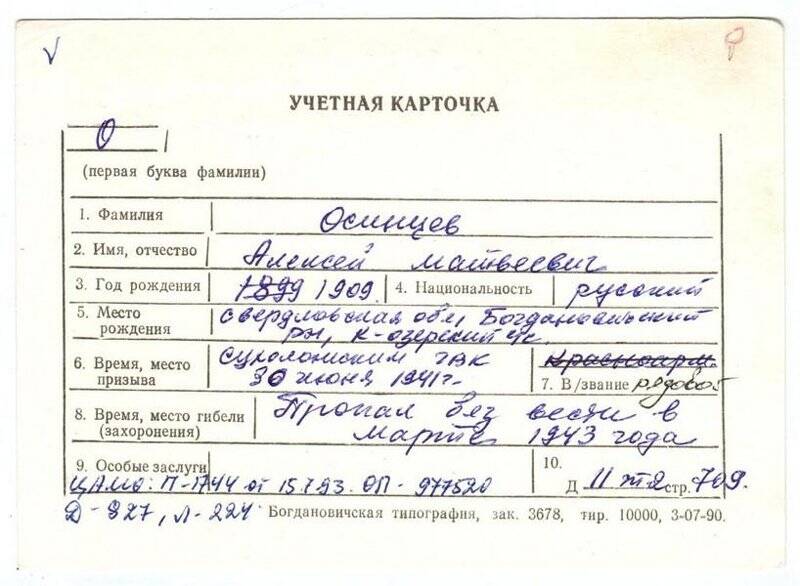 УЧЕТНАЯ КАРТОЧКА
О
(первая буква фамилии)
1. Фамилия Осинцев
2. Имя, отчество Алексей Матвеевич
3. Год рождения 1899 1909 4. Национальность русский
5. Место рождения Свердловская обл, Богдановичский
рн, к-озерский с/с.
6. Время, место призыва Сухоложским РВК
30 июня 1941 г.
Красноарм.
7. В/звание рядовой
8. Время, место гибели (захоронения) Пропал без вести в
марте 1943 года
9. Особые заслуги
ЦАМО: П-1744 от 15.1.93. ОП-977520
Д-827, Л-224
10.
Д 11 т 2 стр. 709.
Богдановичская типография, зак. 3678, тир. 10000, 3-07-90.